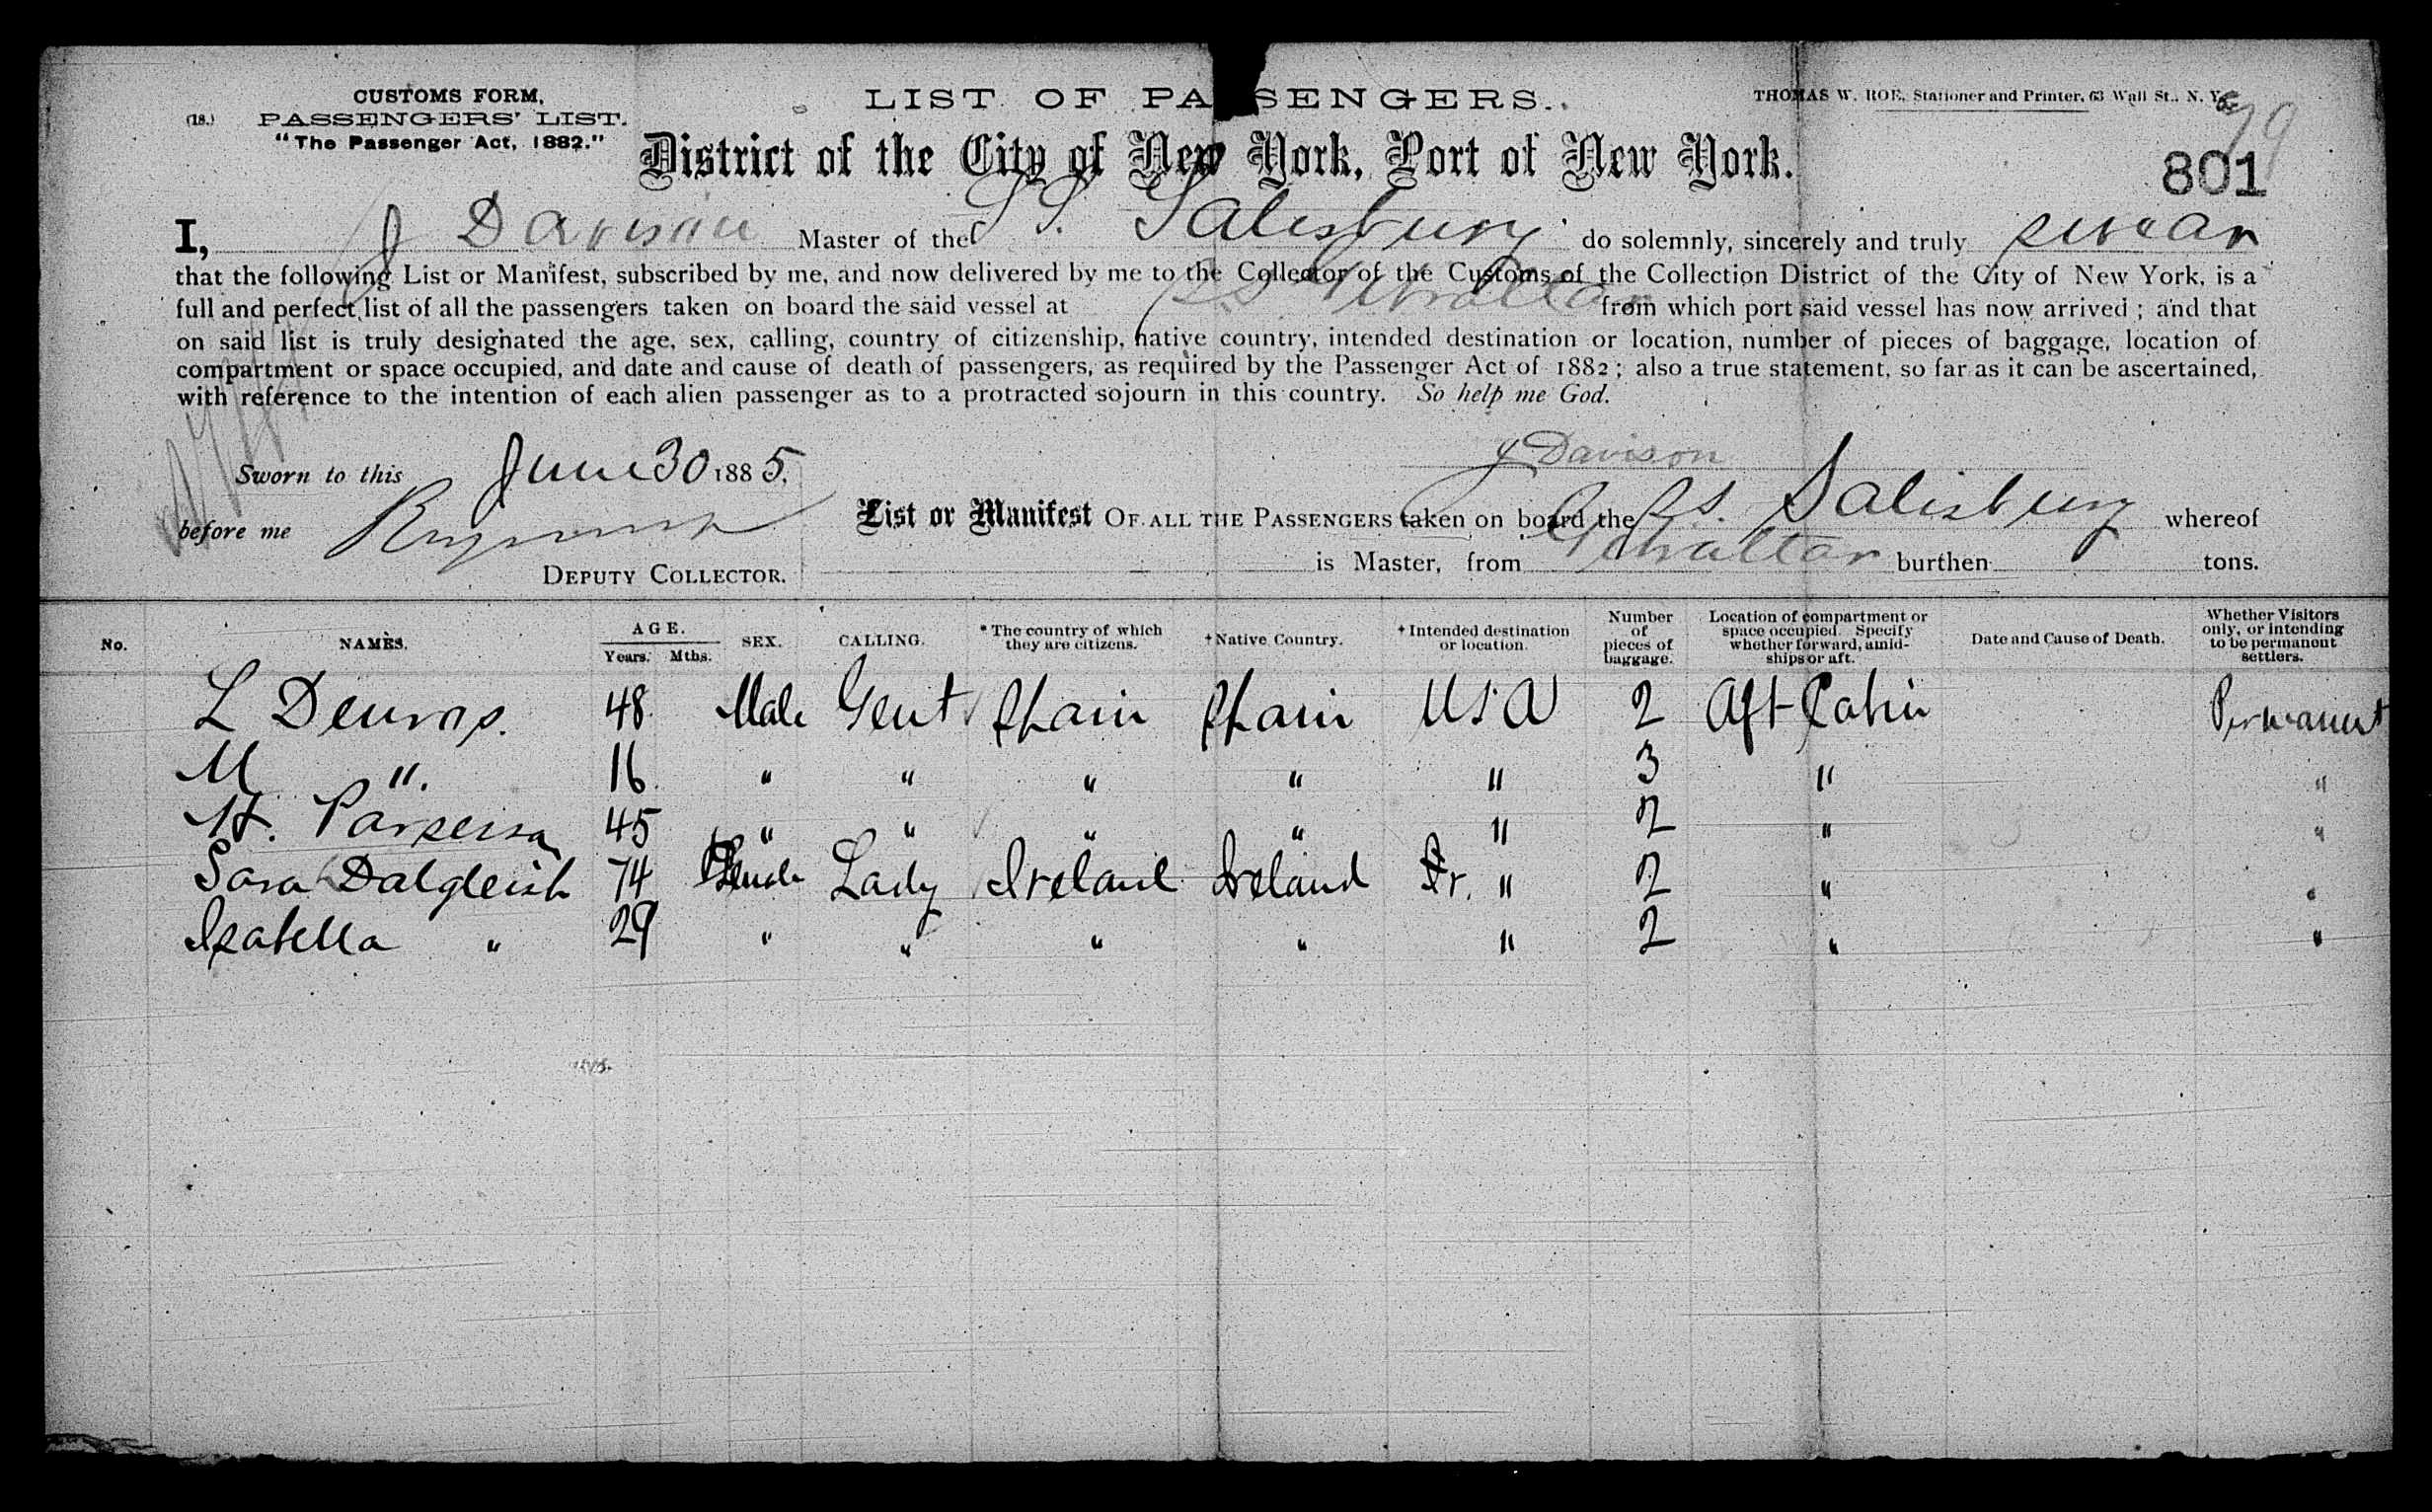 CUSTOMS FORM,
(18.) PASSENGERS' LIST.
"The Passenger Act, 1882."
LIST OF PA SENGERS.
THOMAS W. ROE, Stationer and Printer, 63 Wall St., N. Y.
District of the City of New York, Port of New York.
801
I, J Davison Master of the SS. Salisbury do solemnly, sincerely and truly swear
that the following List or Manifest, subscribed by me, and now delivered by me to the Collector of the Customs of the Collection District of the City of New York, is a
full and perfect list of all the passengers taken on board the said vessel at Gibraltar from which port said vessel has now arrived; and that
on said list is truly designated the age, sex, calling, country of citizenship, native country, intended destination or location, number of pieces of baggage, location of
compartment or space occupied, and date and cause of death of passengers, as required by the Passenger Act of 1882; also a true statement, so far as it can be ascertained,
with reference to the intention of each alien passenger as to a protracted sojourn in this country. So help me God.
J Davison
Sworn to this June 30 1885.
before me
DEPUTY COLLECTOR.
List or Manifest OF ALL THE PASSENGERS taken on board the SS. Salisbury whereof
is Master, from Gibraltar burthen tons.
No. NAMES. AGE. Years. Mths. SEX. CALLING. *The country of which they are citizens. †Native Country. †Intended destination or location. Number of pieces of baggage. Location of compartment or space occupied. Specify whether forward, amid-ships or aft. Date and Cause of Death. Whether Visitors only, or intending to be permanent settlers.
L 48 Male Gent Spain Spain USA 2 Aft Cabin Permanent
M " 16 " " " " " 3 " "
45 " " " " " 2 " "
Sara Dalgleish 74 Lady Ireland Ireland " 2 " "
Isabella " 29 " " " " " 2 " "